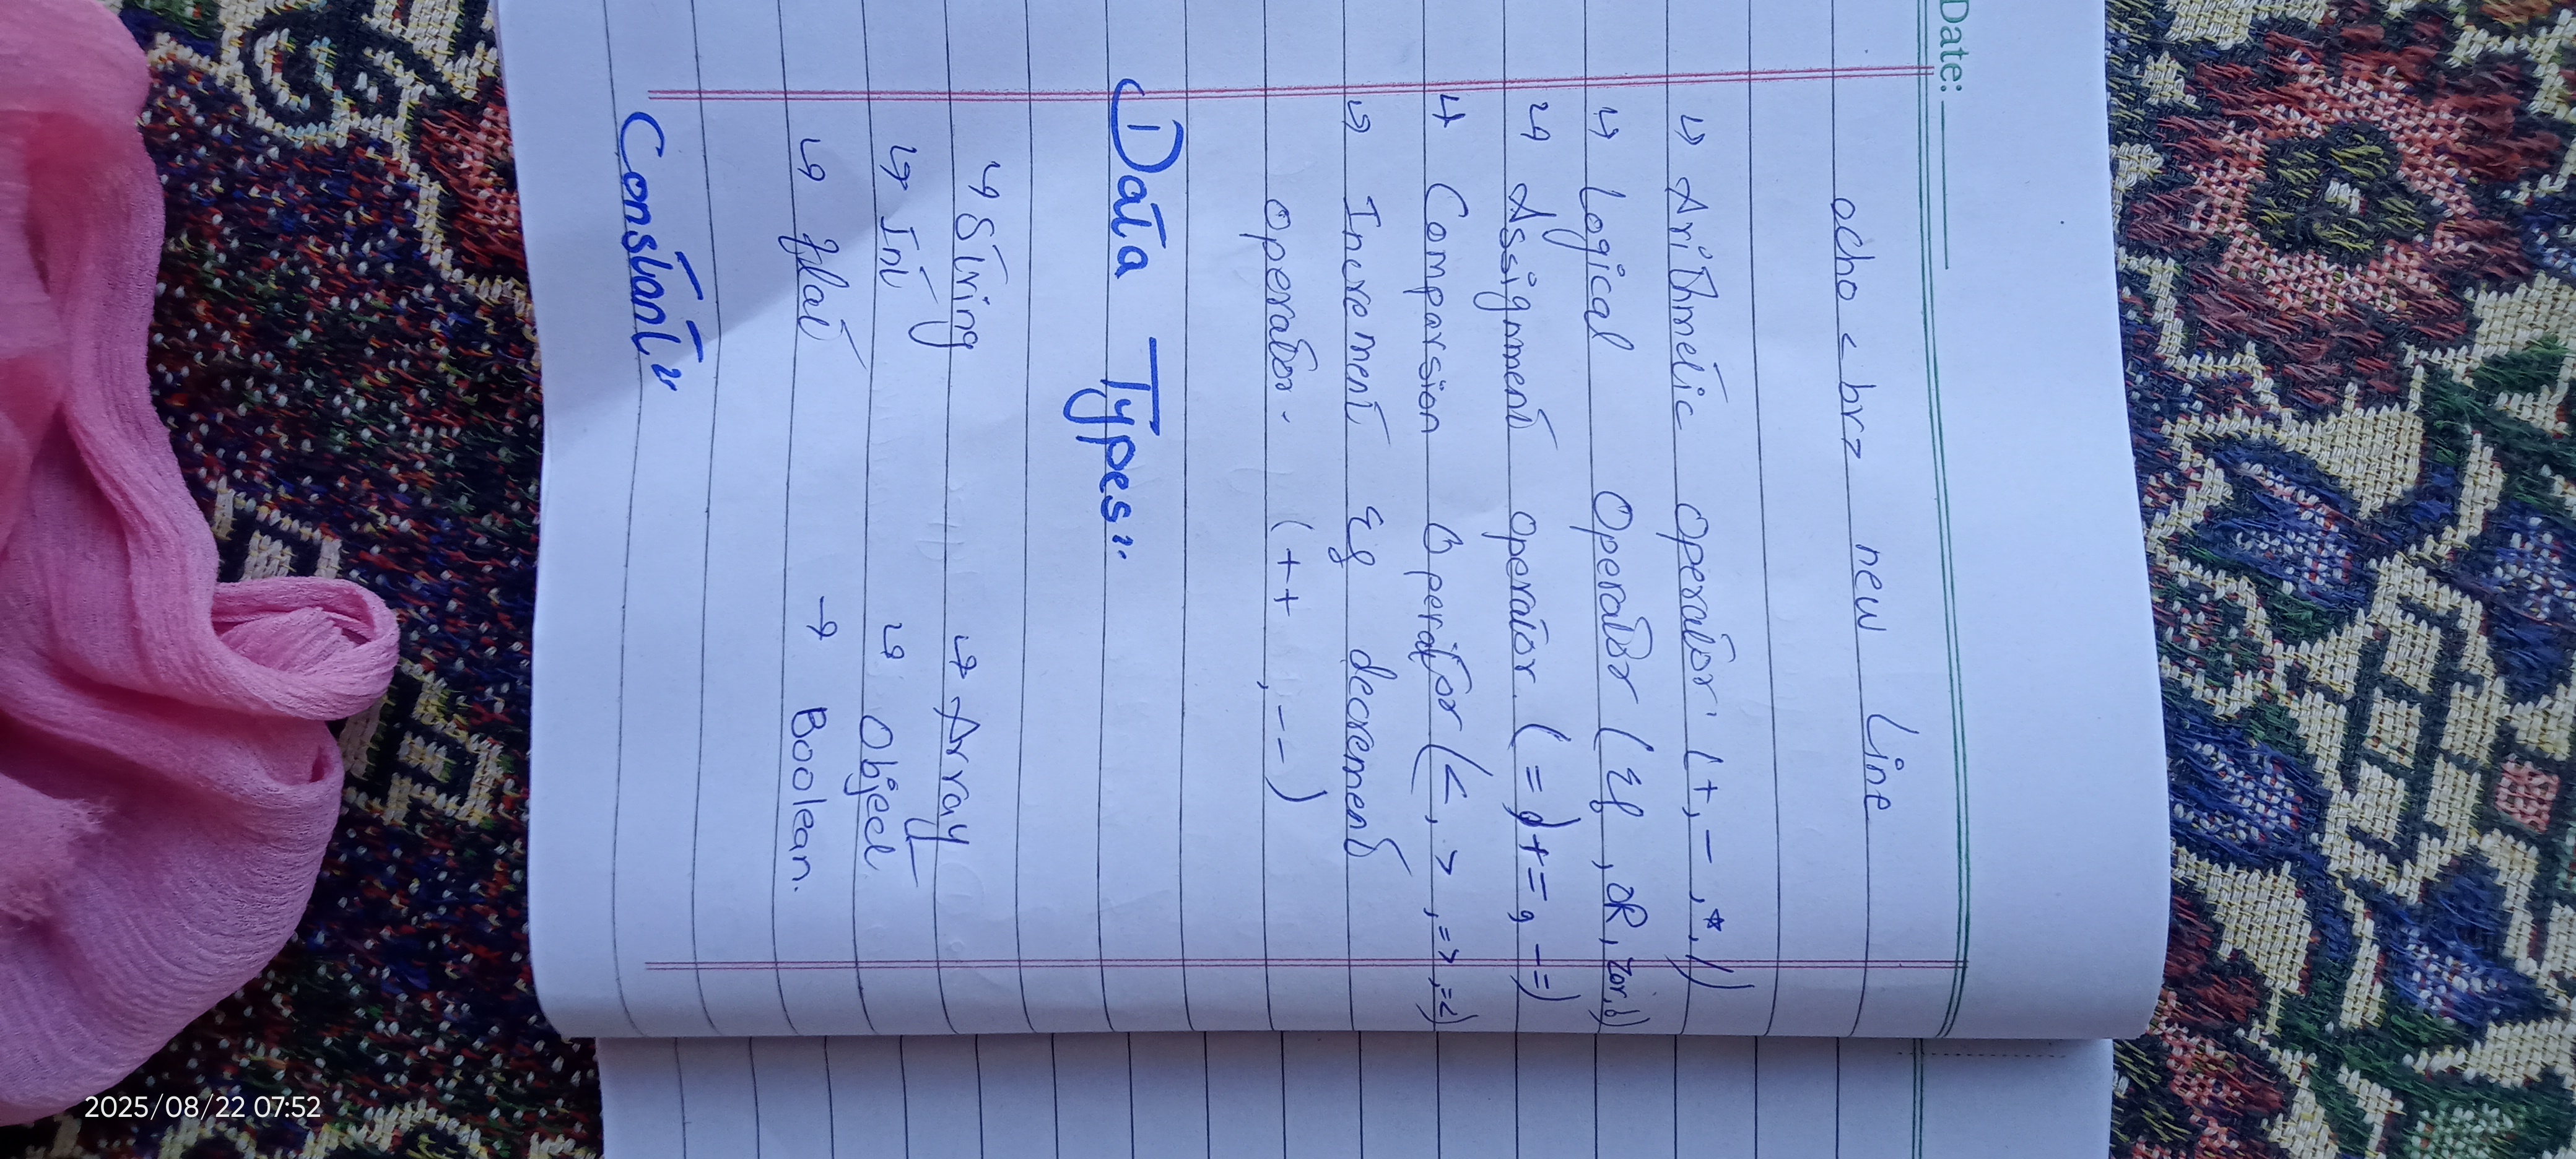 Date:
echo <br> new Line
↳ Arithmetic operator (+, -, *, /)
↳ Logical Operator (&, OR, xor, !)
↳ Assignment operator. (=, +=, -=)
↳ Comparsion Operator (<, >, =>, =<)
↳ Increment & decrement
operator. (++, --)
① Data Types:
↳ String ↳ Array
↳ Int ↳ Object
↳ float → Boolean.
Constant:
2025/08/22 07:52